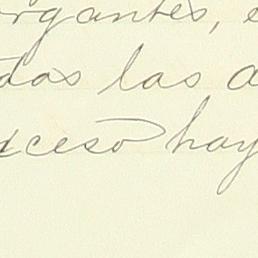 rgantes, e
das las a
xceso hay